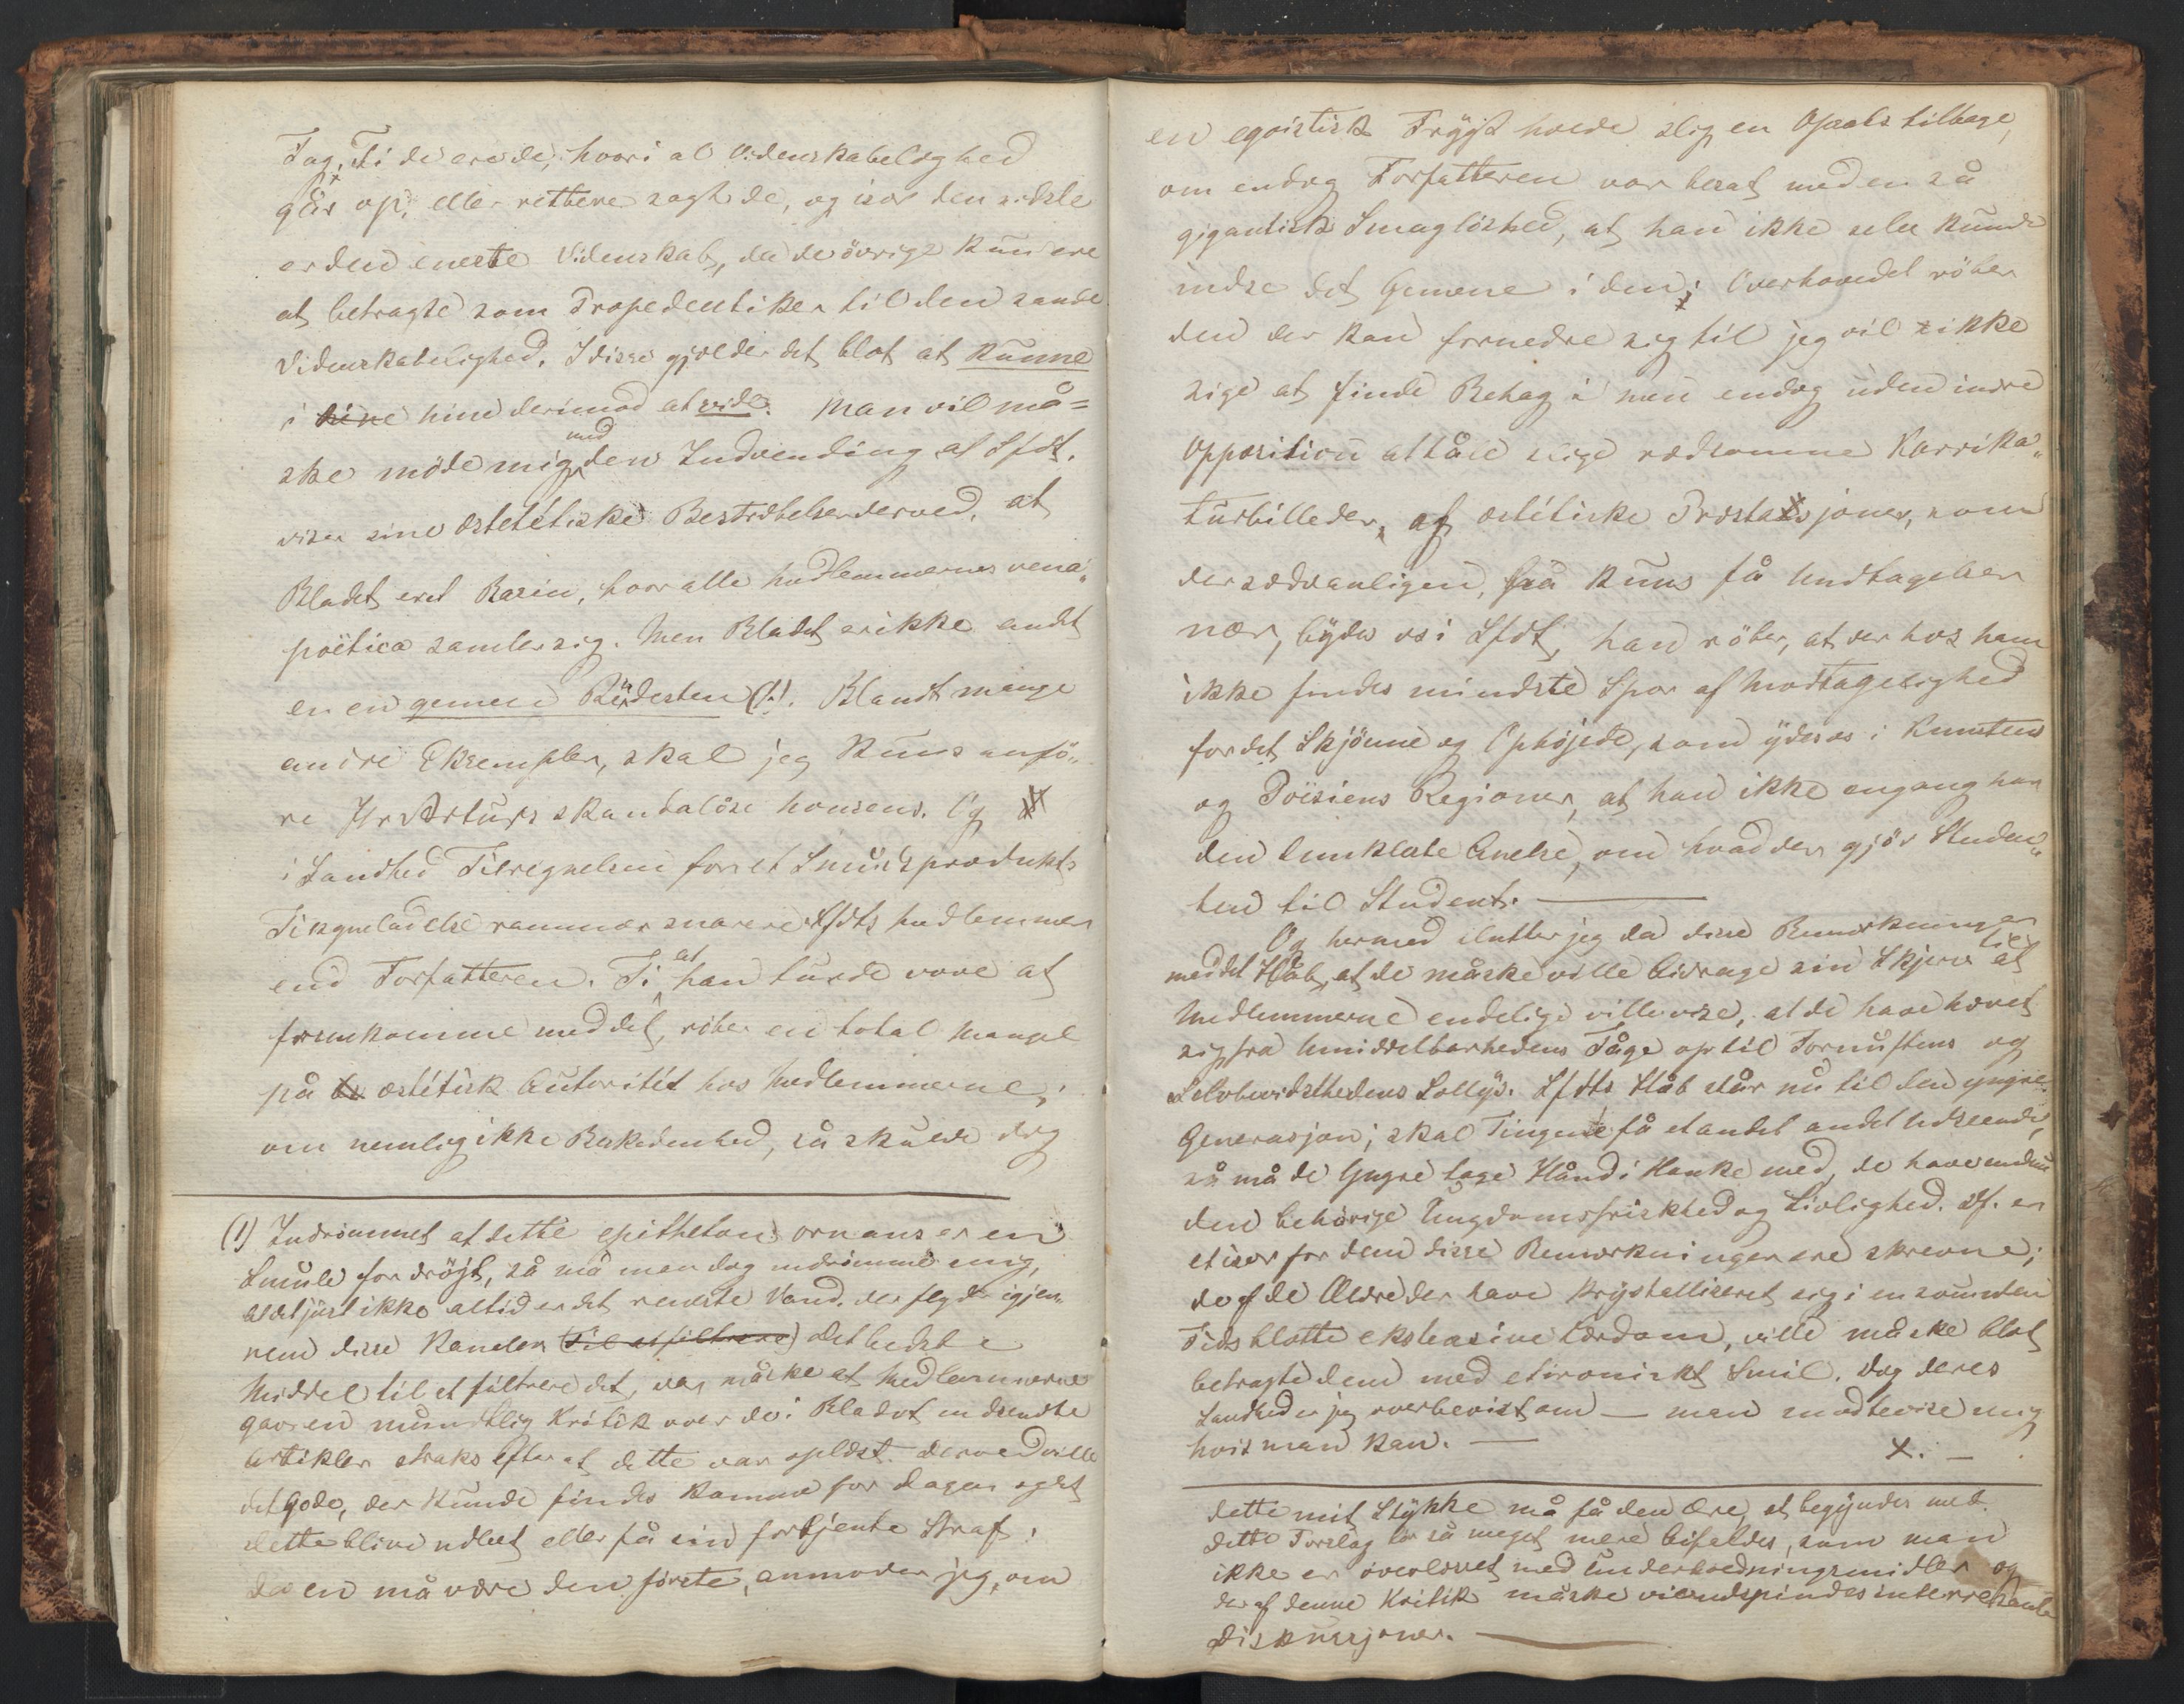 Fag. Ti de ere de, hvori al Videnskabelighed
går op, eller rettere sagt de, og især den sidste
er den eneste Videnskab, da de övrige kun ere
at betragte som Propedeutiker til den sande
Videnskabelighed. I disse gjælder det blot at kunne
i hine derimod at vide. Man vil må=
ske möde mig med den Indvending, at Sfdt.
viser sine æstetiske Bestræbelser derved, at
Bladet er et Basin, hvor alle Medlemmernes vena
poëtica samler sig. Men Bladet er ikke andet
en en gemen Rendesten (1). Blandt mange
andre Eksempler, skal jeg kuns anfö-
re Hr Arturs skandalöse Nonsens. Og
i Sandhed Tilregnelsen for et Smudsprodukts
Tilsyneladelse rammer snarere Sfdts Medlemmer
end Forfatteren. Ti at han turde vove at
fremkomme med det, röber en total Mangel
på æstétisk Autoritét hos Medlemmerne;
om nemlig ikke Beskedenhed, så skulde dog
(1) Indrömmet at dette epitheton ornans er en
Smule for dröjt, så må man dog indrömme mig,
at det just ikke altid er det reneste Vand, der flyder igjen-
nem disse Kanaler (Til at filtrere) Det bedste
Middel til at filtrere det, var måske at Medlemmerne
gav en mundtlig Kritik over de i Bladet indsendte
Artikler straks efter at dette var oplæst. Derved ville
det Gode, der kunde findes komme for Dagen og det
Slette blive udleet eller få sin fortjente Straf.
Da en må være den förste, anmoder jeg, om
en egoistisk Frygt holde slig en Opsats tilbage,
om endog Forfatteren var besat med en så
gigantisk Smaglöshed, at han ikke selv kunde
indse det Gemene i den; Overhovedet röber
den der kan fornedre sig til jeg vil ikke
sige at finde Behag i men endog uden indre
Opposition at tåle slige rædsomme Karrika-
turbilleder, af æstétiske Præstasjoner, som
der sædvanligen, på kuns få Undtagelser
nær, bydes os i Sfdt, han röber, at der hos ham
ikke findes mindste Spor af Modtagelighed
for det Skjönne og Ophöjede, som ydes os i Kunstens
og Poësiens Regioner, at han ikke engang har
den dunkleste Anelse, om hvad der gjör Studen-
ten til Student.
Og hermed slutter jeg da disse Bemærkninger
med det Håb, at de måske ville bidrage sin Skjerv til at
Medlemmerne endelige ville vise, at de have hævet
sig fra Umiddelbarhedens Tåge op til Fornuftens og
Selvbevidsthedens Sollys. Sfdts Håb står nu til den yngre
Generasjon; skal Tingene få et andet andet Udseende,
så må de Yngre tage Hånd i Hanke med, de have endnu
den behörige Ungdomsfriskhed og Livlighed. Df. er
et især for dem disse Bemærkninger ere skrevne;
de af de Ældre der have krystalliseret sig i en
Tids blotte ekstensive Lærdom, ville måske blot
betragte dem med et ironiskt Smil. Dog deres
Sandhed er jeg overbevist om — man modbevise mig
hvis man kan. —
X. —
dette mit Stykke må få den Ære, at begyndes med.
Dette Forslag bör så meget mere bifaldes, som man
ikke er overlæsset med Underholdningsmidler og
der af denne Kritik måske vil udspindes interressante
Diskussjoner. —